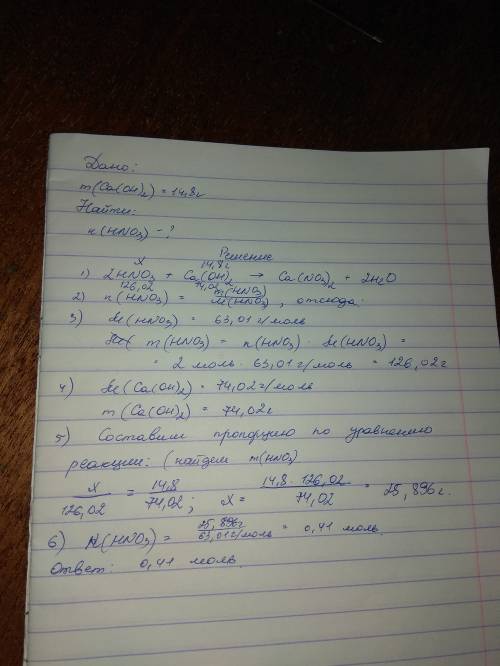 Дано:
m(Ca(OH)₂) = 14,8г
Найти:
n(HNO₃) - ?
Решение
x 14,8г
1) 2HNO₃ + Ca(OH)₂ → Ca(NO₃)₂ + 2H₂O
126,02 74,02
2) n(HNO₃) = m(HNO₃) / M(HNO₃), отсюда:
3) M(HNO₃) = 63,01 г/моль
m(HNO₃) = n(HNO₃) · M(HNO₃) =
= 2 моль · 63,01 г/моль = 126,02г
4) M(Ca(OH)₂) = 74,02 г/моль
m(Ca(OH)₂) = 74,02г
5) Составим пропорцию по уравнению
реакции: (найдем m(HNO₃)
x / 126,02 = 14,8 / 74,02 ; x = 14,8 · 126,02 / 74,02 = 25,896г.
6) n(HNO₃) = 25,896г / 63,01 г/моль = 0,41 моль.
Ответ: 0,41 моль.